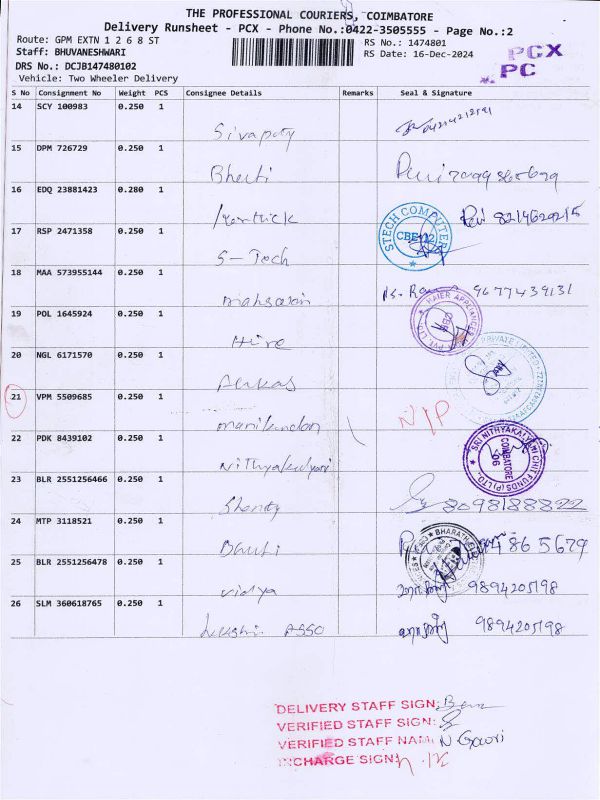 THE PROFESSIONAL COURIERS, COIMBATORE
Delivery Runsheet - PCX - Phone No.:0422-3505555 - Page No.:2
Route: GPM EXTN 1 2 6 8 ST
RS No.: 1474801
Staff: BHUVANESHWARI
RS Date: 16-Dec-2024
PCX
DRS No.: DCJB147480102
PC
Vehicle: Two Wheeler Delivery
S No Consignment No Weight PCS Consignee Details Remarks Seal & Signature
14 SCY 100983 0.250 1
15 DPM 726729 0.250 1
Bharti
16 EDQ 23881423 0.280 1
STECH COMPUTER
CBE-12
17 RSP 2471358 0.250 1
S-Tech
18 MAA 573955144 0.250 1
9677439131
HAIER APPLIANCES
PVT. LTD.
19 POL 1645924 0.250 1
Hire
20 NGL 6171570 0.250 1
PRIVATE LIMITED
21 VPM 5509685 0.250 1
manikandan
N/P
22 PDK 8439102 0.250 1
Nithyakalyani
SRI NITHYAKALYANI CHIT FUNDS (P) LTD.
COIMBATORE
06
23 BLR 2551256466 0.250 1
8098188822
24 MTP 3118521 0.250 1
BHARATH
25 BLR 2551256478 0.250 1
vidya
9894205198
26 SLM 360618765 0.250 1
9894205198
DELIVERY STAFF SIGN:
VERIFIED STAFF SIGN:
VERIFIED STAFF NAME: N Gowri
INCHARGE SIGN: